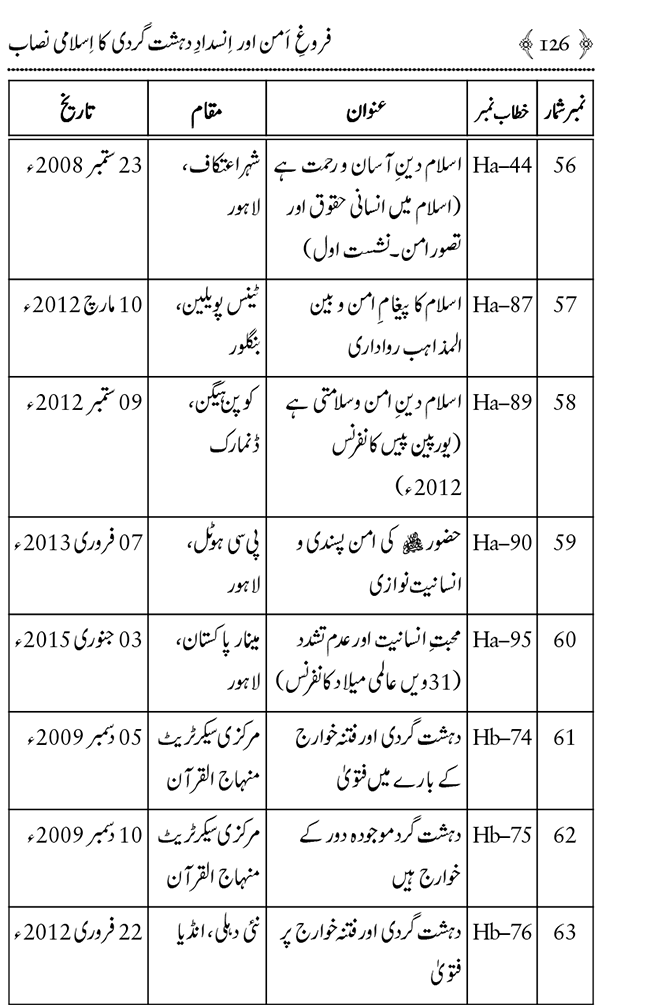 ﴿ 126 ﴾ فروغِ اَمن اور اِنسدادِ دہشت گردی کا اِسلامی نصاب
نمبر شمار خطاب نمبر عنوان مقام تاریخ
56 Ha–44 اسلام دینِ آسان و رحمت ہے شہر اعتکاف، 23 ستمبر 2008ء
(اسلام میں انسانی حقوق اور لاہور
تصور امن۔ نشست اول)
57 Ha–87 اسلام کا پیغامِ امن و بین ٹینس پویلین، 10 مارچ 2012ء
المذاہب رواداری بنگلور
58 Ha–89 اسلام دینِ امن وسلامتی ہے کوپن ہیگن، 09 ستمبر 2012ء
(یورپین پیس کانفرنس ڈنمارک
2012ء)
59 Ha–90 حضور ﷺ کی امن پسندی و پی سی ہوٹل، 07 فروری 2013ء
انسانیت نوازی لاہور
60 Ha–95 محبتِ انسانیت اور عدم تشدد مینار پاکستان، 03 جنوری 2015ء
(31ویں عالمی میلاد کانفرنس) لاہور
61 Hb–74 دہشت گردی اور فتنہ خوارج مرکزی سیکرٹریٹ 05 دسمبر 2009ء
کے بارے میں فتویٰ منہاج القرآن
62 Hb–75 دہشت گرد موجودہ دور کے مرکزی سیکرٹریٹ 10 دسمبر 2009ء
خوارج ہیں منہاج القرآن
63 Hb–76 دہشت گردی اور فتنہ خوارج پر نئی دہلی، انڈیا 22 فروری 2012ء
فتویٰ